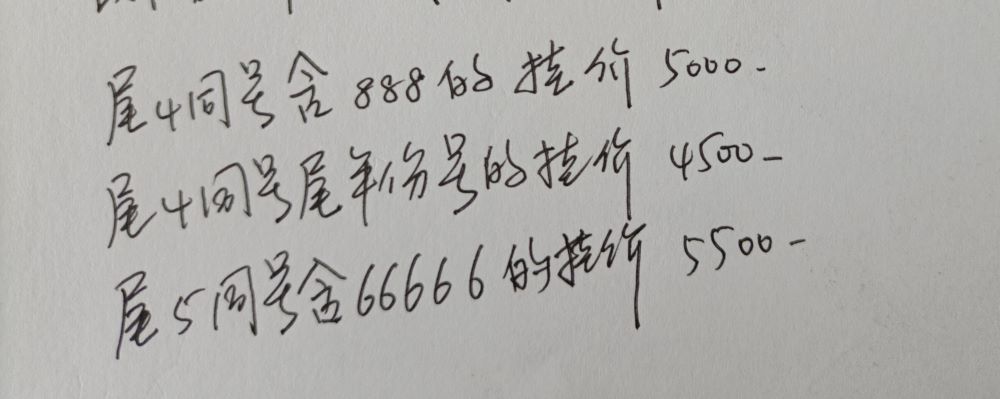 尾4同号含888的挂价5000-
尾4同号尾年份号的挂价4500-
尾5同号含66666的挂价5500-